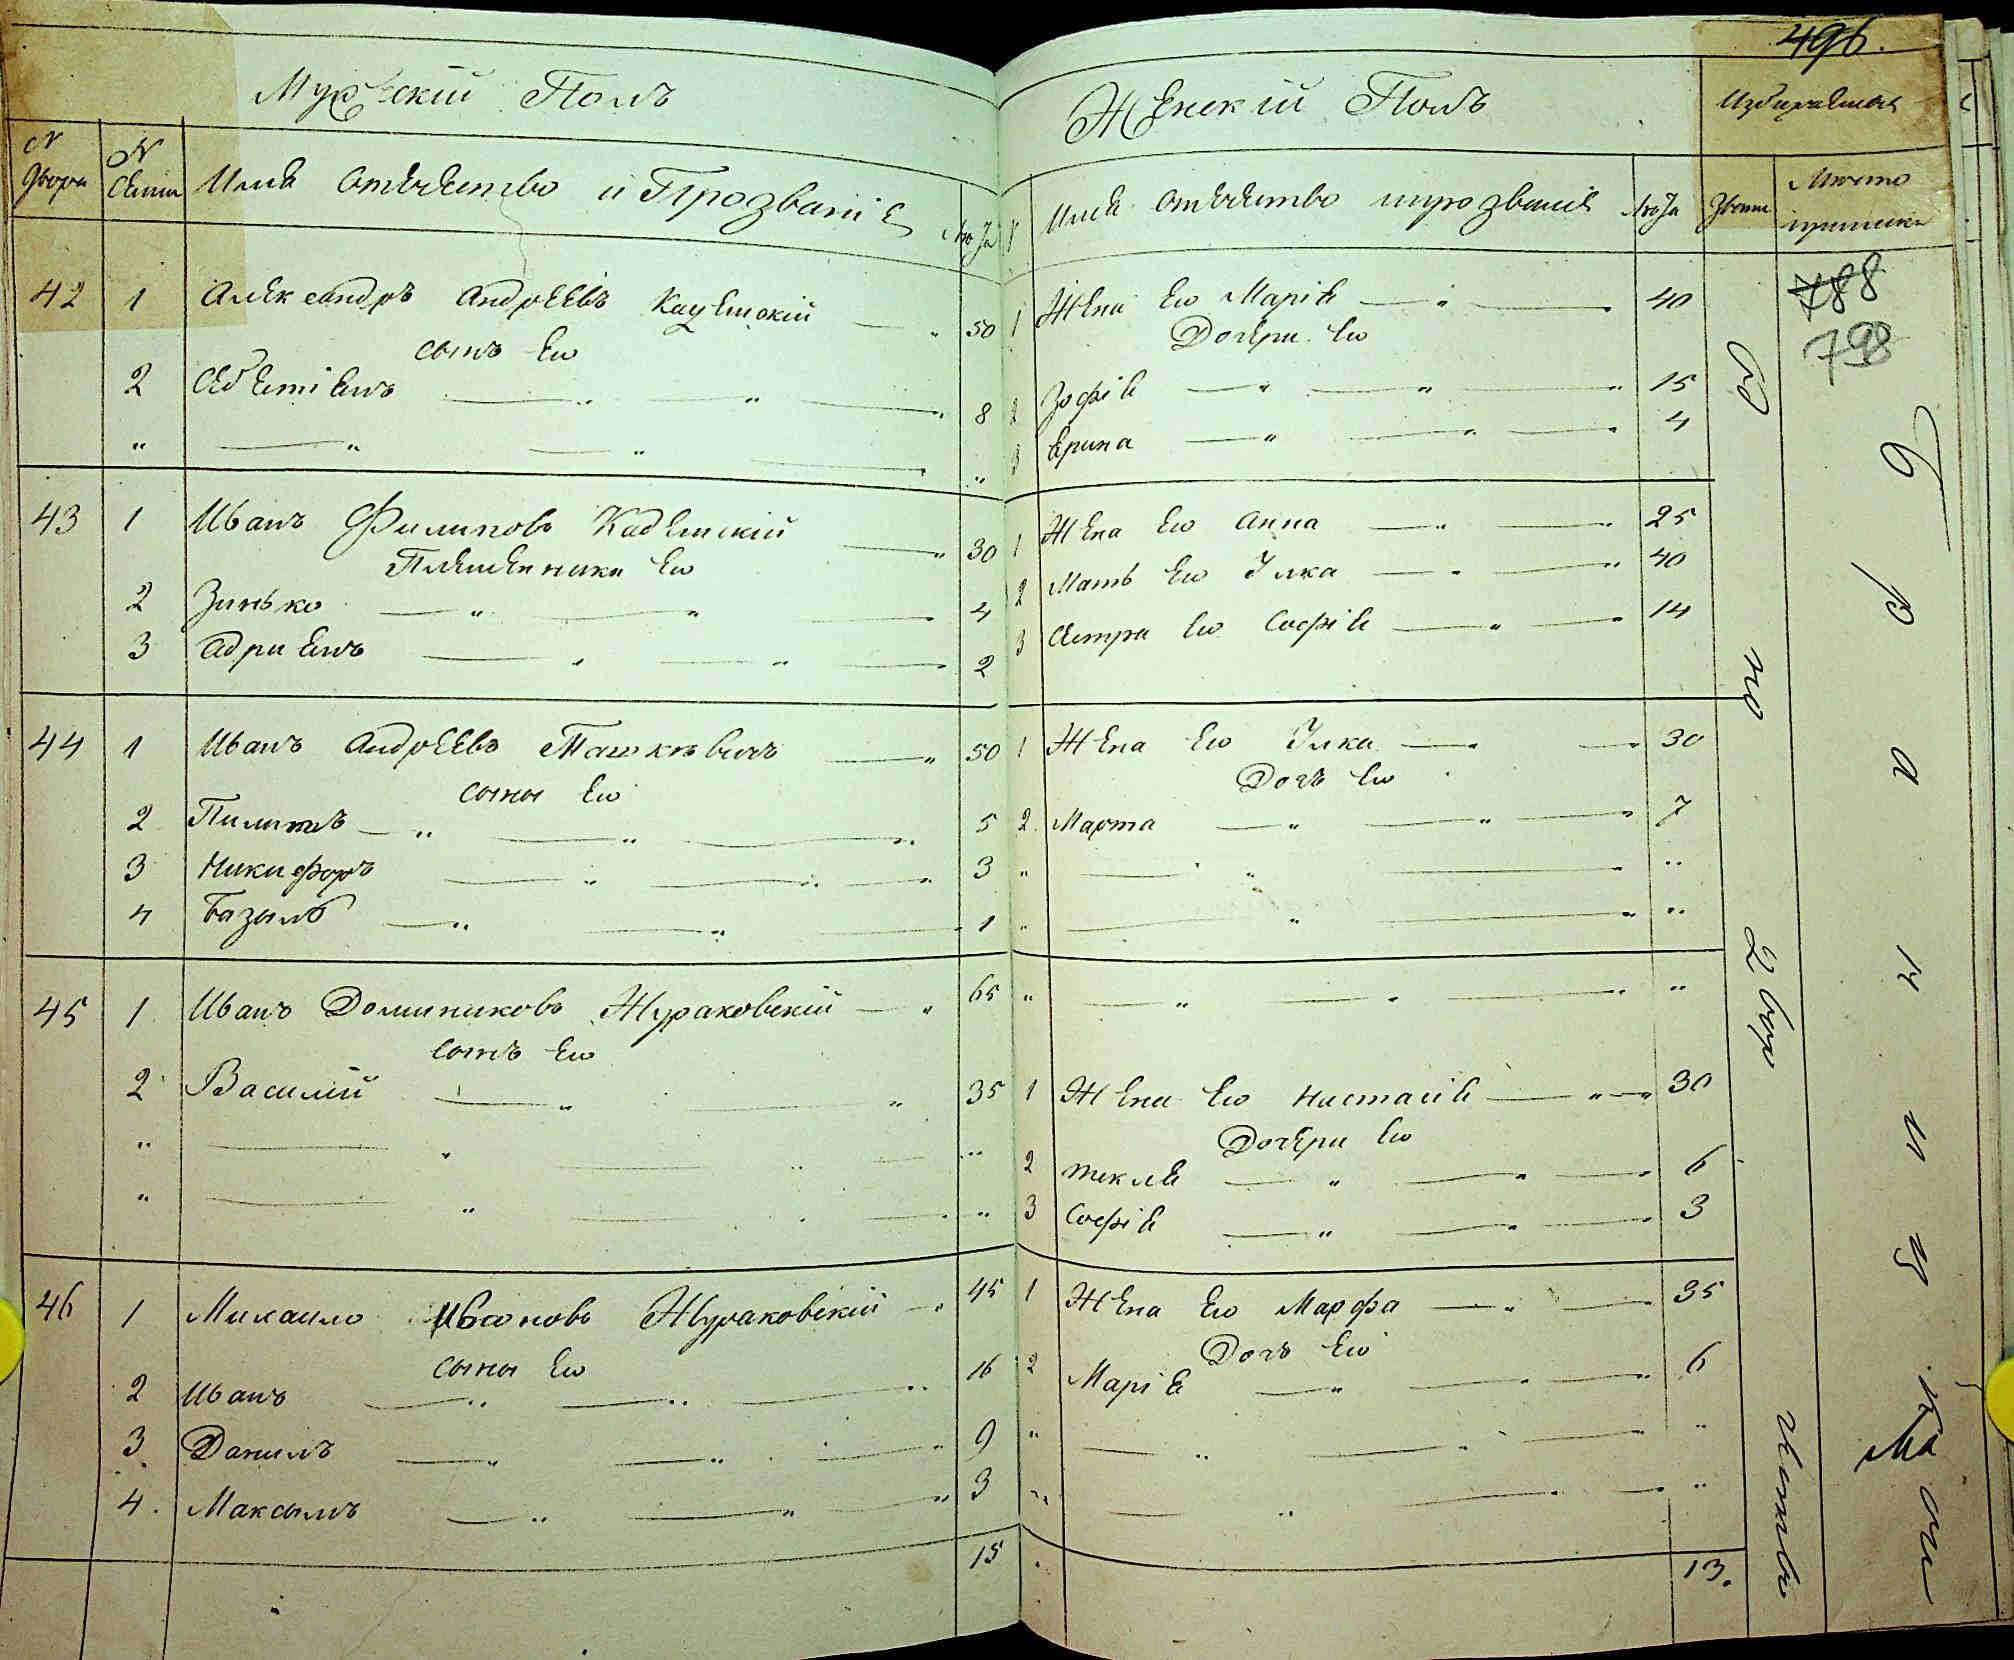 496.
Мужескій Полъ
Женскій Полъ
Избираемыя
N двора
N семьи
Имя отечество и Прозваніе
Лѣта
Имя отечество и прозваніе
Лѣта
Званіе
Мѣсто приписки
788
798
42 1 Александръ Андреевъ — " 50
1 Жена Его Марія — " — 40
сынъ Его
Дочери Его
2 — " — " — " 8
2 Зофія — " — " — " 15
" — " — " — "
3 Ярина — " — " — " 4
43 1 Иванъ Филиповъ — " 30
1 Жена Его Анна — " — " 25
Племеники Его
2 Зинько — " — " — 4
2 Мать Его Юлка — " — " 40
3 Адриянъ — " — " — " 2
3 Сестра Его Софія — " — " 14
44 1 Иванъ Андреевъ Ташкевичъ — " 50
1 Жена Его Юлка — " — " 30
сыны Его
Дочь Его
2 Пилипъ — " — " — " 5
2 Марта — " — " — " 7
3 Никифоръ — " — " — " 3
" — " — " "
4 Базыль — " — " — 1
" — " — " "
45 1 Иванъ Доминиковъ Жураковскій — " 65
" — " — " — " "
сынъ Его
2 Василій — " — " 35
1 Жена Его Настасія — " — " 30
Дочери Его
" — " — " — "
2 Текля — " — " — " 6
" — " — " — "
3 Софія — " — " — " 3
46 1 Михаило Ивановъ Жураковскій — " 45
1 Жена Его Марфа — " — 35
сыны Его
Дочь Его
2 Иванъ — " — " — " 16
2 Марія — " — " — " 6
3 Данилъ — " — " — " 9
" — " — " — "
4 Максымъ — " — " — " 3
" — " — " — "
15
13.
по